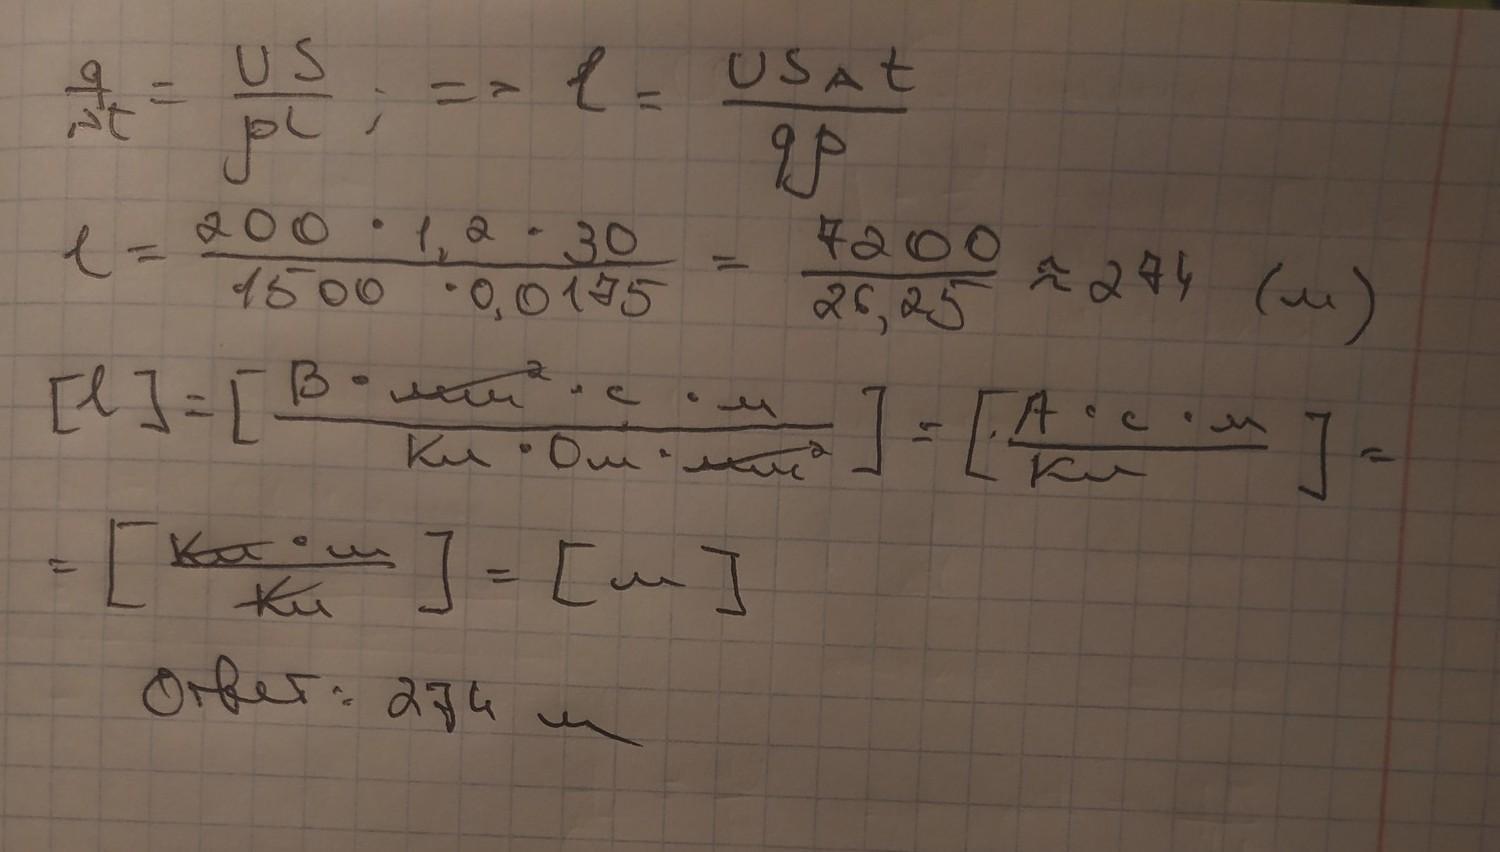 q/Δt = US/ρl ; => l = USΔt/qρ
l = 200 · 1,2 · 30/1500 · 0,0175 = 7200/26,25 ≈ 274 (м)
[l] = [В · мм² · с · м/Кл · Ом · мм²] = [А · с · м/Кл] =
= [Кл · м/Кл] = [м]
Ответ: 274 м